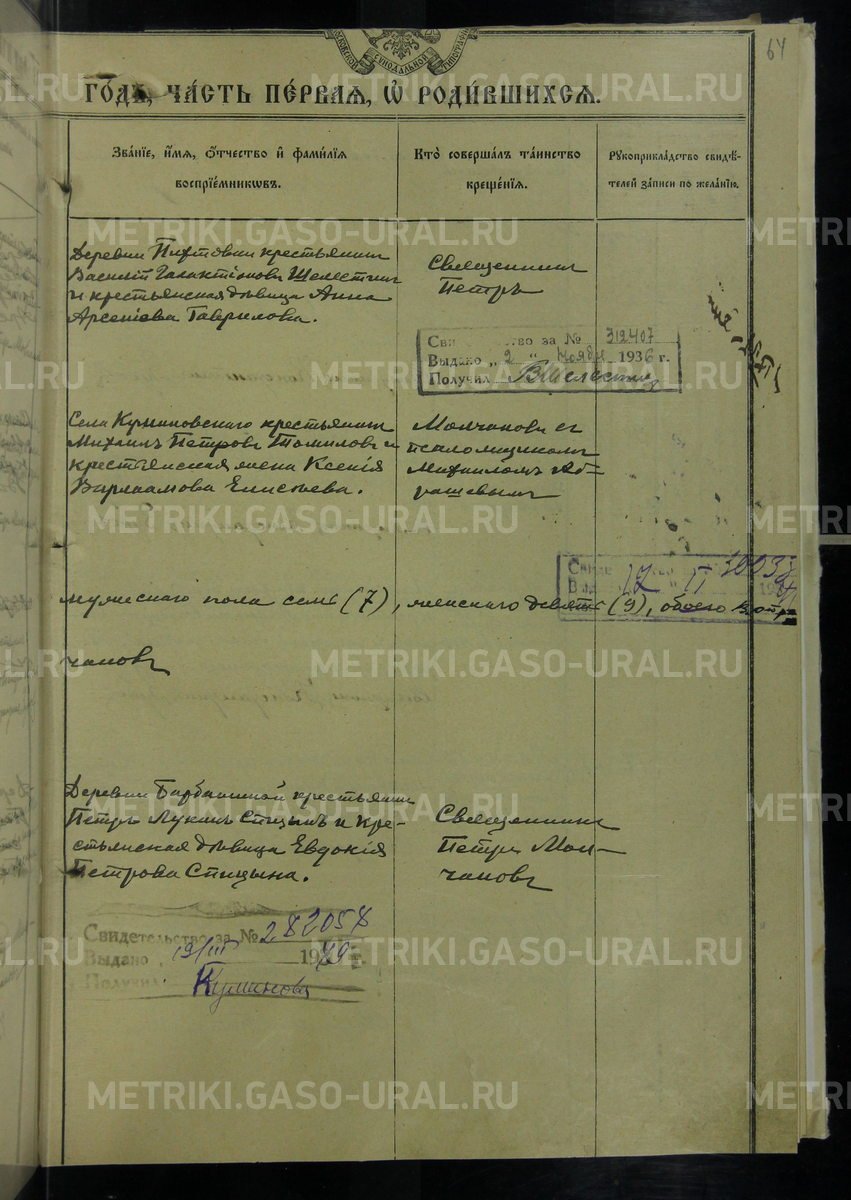 64
МОСКОВСКОЙ СѴНОДАЛЬНОЙ ТИПОГРАФІИ
ГО́ДЪ, ЧА́СТЬ ПЕ́РВАЯ, Ѽ РОДИ́ВШИХСЯ.
Зва́ніе, и҆́мя, ѻ҆́тчество и҆ фами́лія
воспріе́мникѡвъ.
Кто̀ соверша́лъ та́инство
креще́нія.
Рꙋкоприкла́дство свидѣ́-
телей за́писи по жела́нію.
Деревни крестьянин
Василій Галактіоновъ Шелестин
и крестьянская дѣвица Анна
Арсеніева Гаврилова.
Священник
Петръ
Сви во за № 312407
Выдано „ 2 “ ноября 1936 г.
Получил ВШелестин
Села крестьянин
Михаилъ Петровъ Томиловъ и
крестьянская жена Ксенія
Варлаамова Елисѣева.
Молчановъ съ
псаломщикомъ
Михаиломъ Аб=
рашевым
мужескаго пола семь (7), женскаго девять (9), обоего
чановъ
Деревни крестьянин
Петръ Лукинъ Спицынъ и кре-
стьянская дѣвица Евдокія
Петрова Спицына.
Священникъ
Петръ Мол-
чановъ
Свидетельство за № 282058
Выдано 19/III 1949 г.
Получил
METRIKI.GASO-URAL.RU